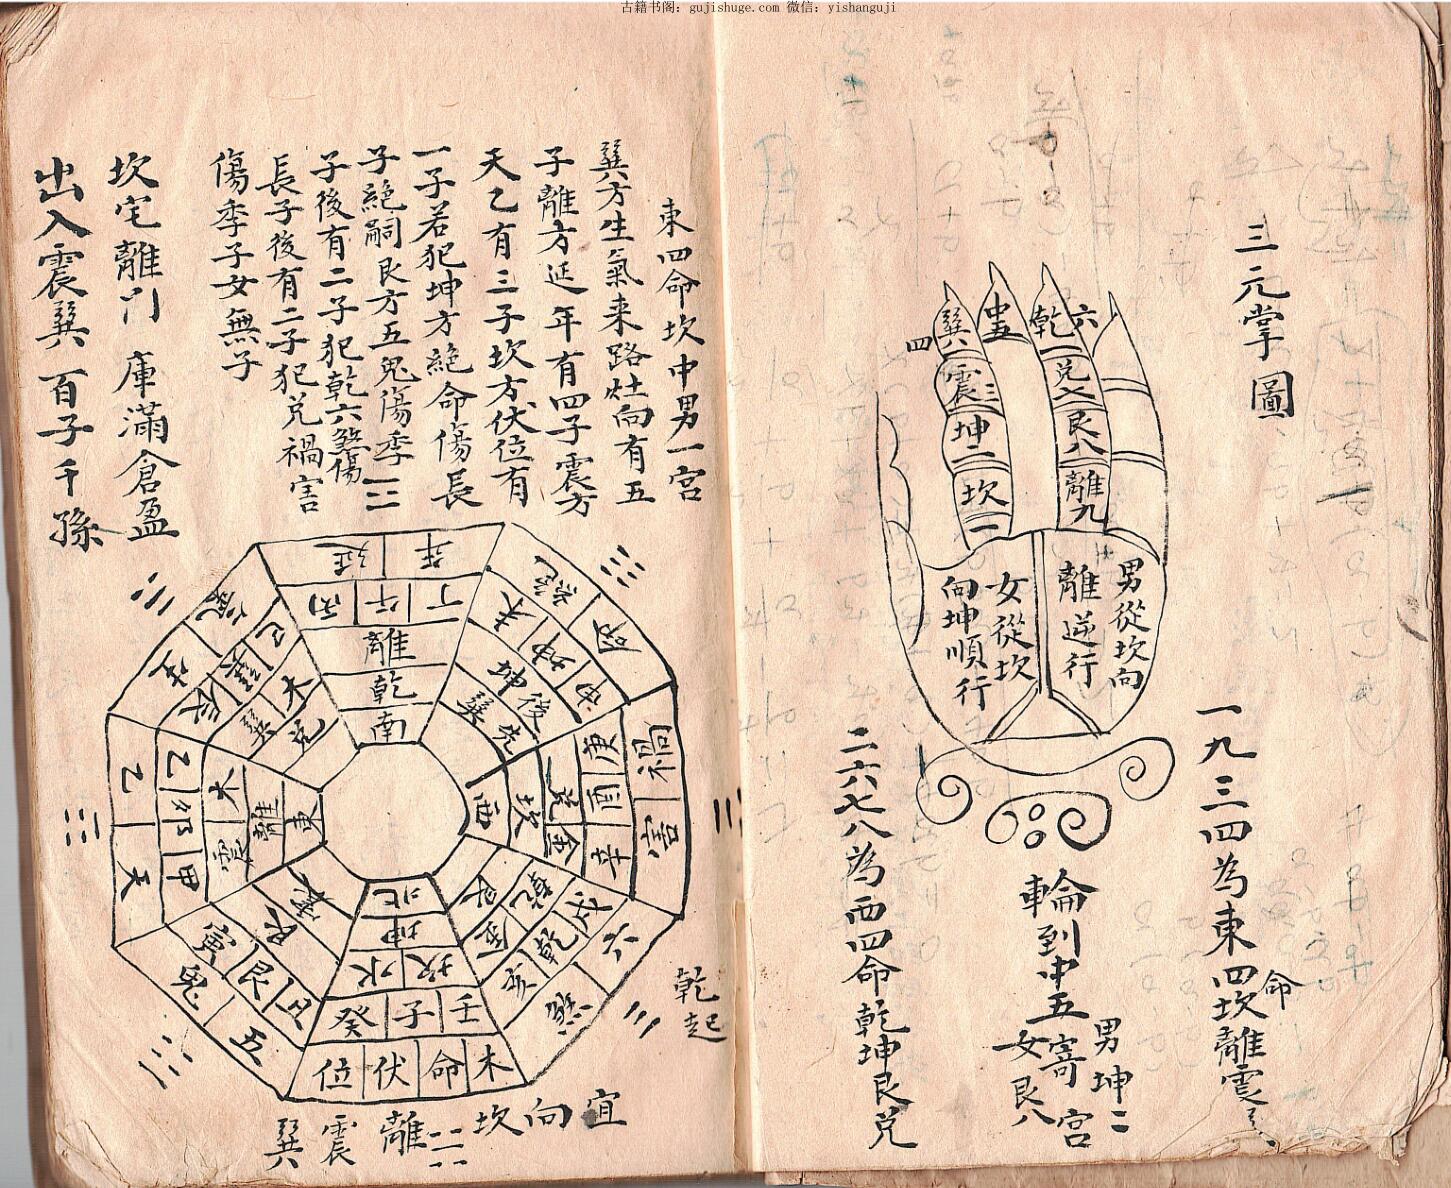 古籍书阁：gujishuge.com 微信：yishanguji
三元掌圖
六
乾
兌七
艮八
離九
中五
四
巽
震三
坤二
坎一
男從坎向
離逆行
女從坎
向坤順行
一九三四為東四命坎離震
輪到中五寄宮
男坤二
女艮八
二六七八為西四命乾坤艮兌
東四命坎中男一宮
巽方生氣来路灶向有五
子離方延年有四子震方
天乙有三子坎方伏位有
一子若犯坤方絕命傷長
子絕嗣艮方五鬼傷季
子後有二子犯乾六煞傷
長子後有二子犯兌禍害
傷季子女無子
坎宅離門 庫滿倉盈
出入震巽 百子千孫
延年
丙午丁
離
乾
南
絕命
未坤申
坤後
巽先
禍害
庚酉辛
兌金
坎
西
六煞
戌乾亥
乾金
艮
木命伏位
壬子癸
坎水
坤
北
五鬼
丑艮寅
艮
震
天乙
甲卯乙
震木
離
東
生氣
辰巽巳
巽木
兌
乾起
宜向坎離震巽